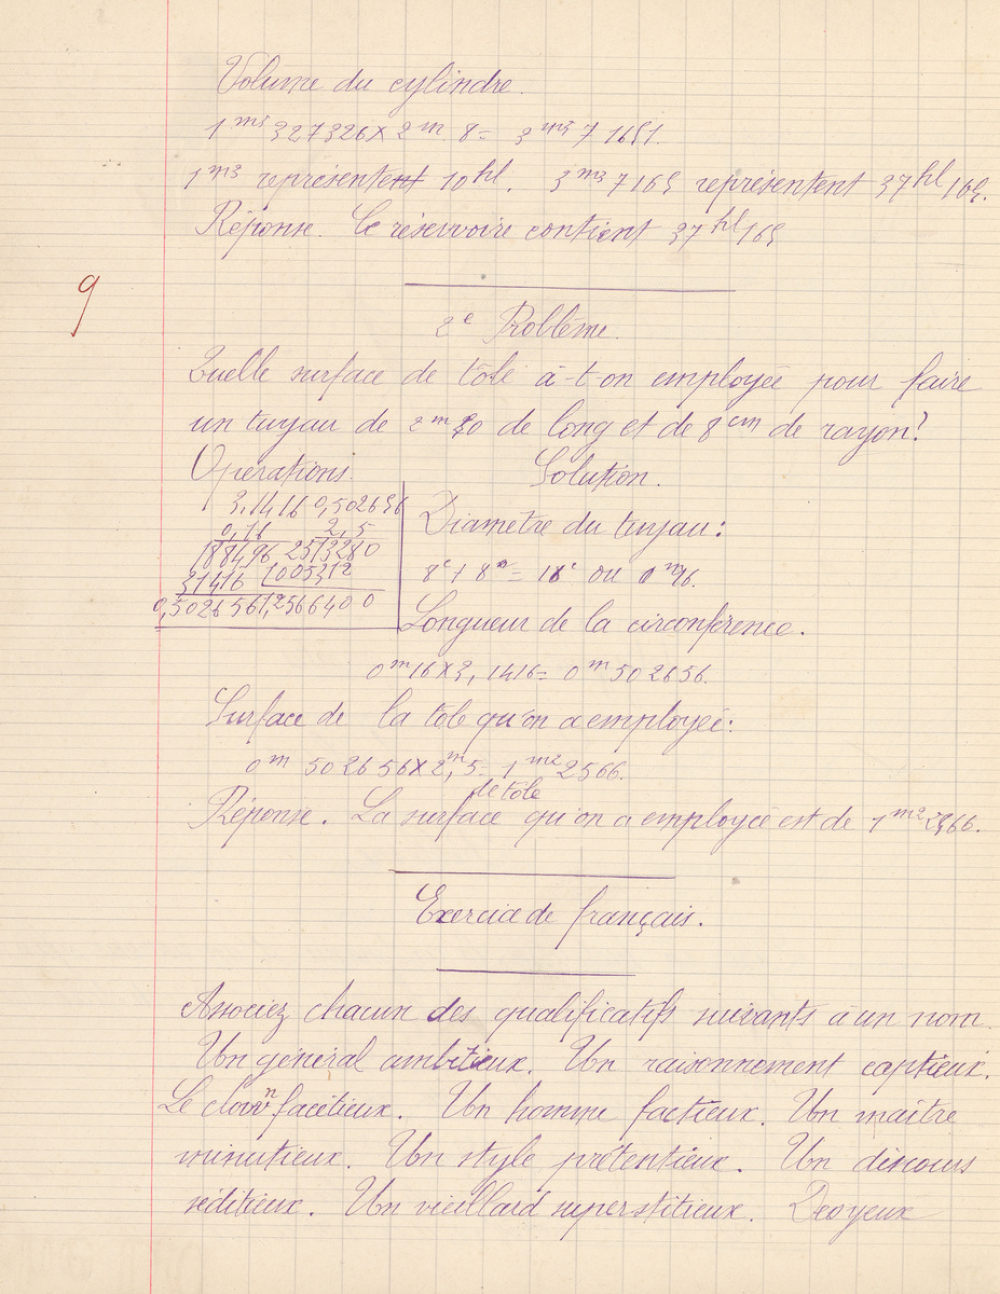 Volume du cylindre.
1 m3 327326 X 2 m. 8 = 3 m3 7 1651.
1 m3 représentent 10 hl. 3 m3 7165 représentent 37 hl 165.
Réponse. Le réservoire contient 37 hl 165
9
2e Problème.
Quelle surface de tôle a-t-on employée pour faire
un tuyau de 2 m 50 de long et de 8 cm de rayon?
Opérations. Solution.
3,1416 0,502656
0,16 2,5
188496 2513280
31416 1005312
0,502656 1,2566400
Diamètre du tuyau:
8c + 8c = 16c ou 0m16.
Longueur de la circonférence.
0m16 X 3,1416 = 0m502656.
Surface de la tôle qu'on a employée:
0m 502656 X 2m,5 = 1 m2 2566.
de tôle
Réponse. La surface qu'on a employée est de 1 m2 2566.
Exercice de français.
Associez chacun des qualificatifs suivants à un nom.
Un général ambitieux. Un raisonnement captieux.
Le clown facétieux. Un homme factieux. Un maître
minutieux. Un style prétentieux. Un discours
séditieux. Un vieillard superstitieux. Des yeux